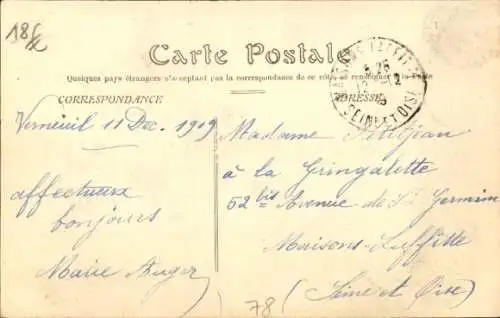 186
Carte Postale
Quelques pays étrangers n'acceptant pas la correspondance de ce côté, se renseigner à la Poste
CORRESPONDANCE
ADRESSE
MAISONS LAFFITTE
SEINE ET OISE
Verneuil 11 Dec. 1919
affectueux
bonjours
Marie Auger
Madame Petitjean
à la Gringalette
52 bis Avenue de St Germain
Maisons-Laffitte
(Seine et Oise)
78